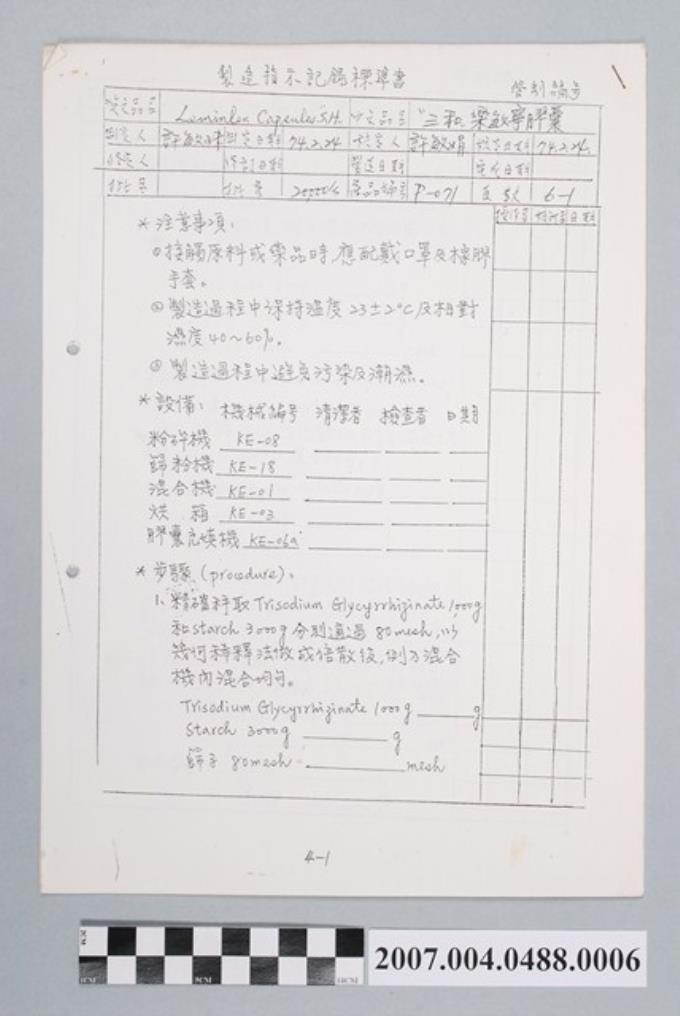 製造指示記錄標準書
管制編號
Leminlex Capsules "S.H. 中文品名 "三和"樂敏寧膠囊
制定人 許敏娟 制定日期 74.2.24 核定人 許敏娟 核定日期 74.2.24.
修定人 修訂日期 製造日期 完成日期
批號 批量 產品編號 P-071 頁數 6-1
操作者 核對者 日期
* 注意事項:
① 接觸原料或藥品時,應配戴口罩及橡膠
手套。
② 製造過程中保持溫度 23±2°C 及相對
濕度 40~60%。
③ 製造過程中避免污染及潮濕。
* 設備: 機械編號 清潔者 檢查者 日期
粉碎機 KE-08
篩粉機 KE-18
混合機 KE-01
烘 箱 KE-03
膠囊充填機 KE-06a
* 步驟 (procedure):
1. 精確秤取 Trisodium Glycyrrhizinate 1,000g
和 starch 3000g 分別通過 80 mesh, 以
幾何稀釋法做成倍散後, 倒入混合
機內混合均勻。
Trisodium Glycyrrhizinate 1000g ______ g
Starch 3000g ______ g
篩子 80 mesh ______ mesh
4-1
2CM
0CM
5CM
10CM
2007.004.0488.0006